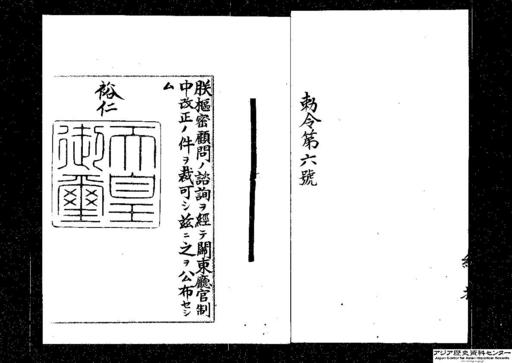 勅令第六號
朕樞密顧問ノ諮詢ヲ經テ關東廳官制
中改正ノ件ヲ裁可シ茲ニ之ヲ公布セシ
ム
裕仁
天皇
御璽
アジア歴史資料センター
Japan Center for Asian Historical Records